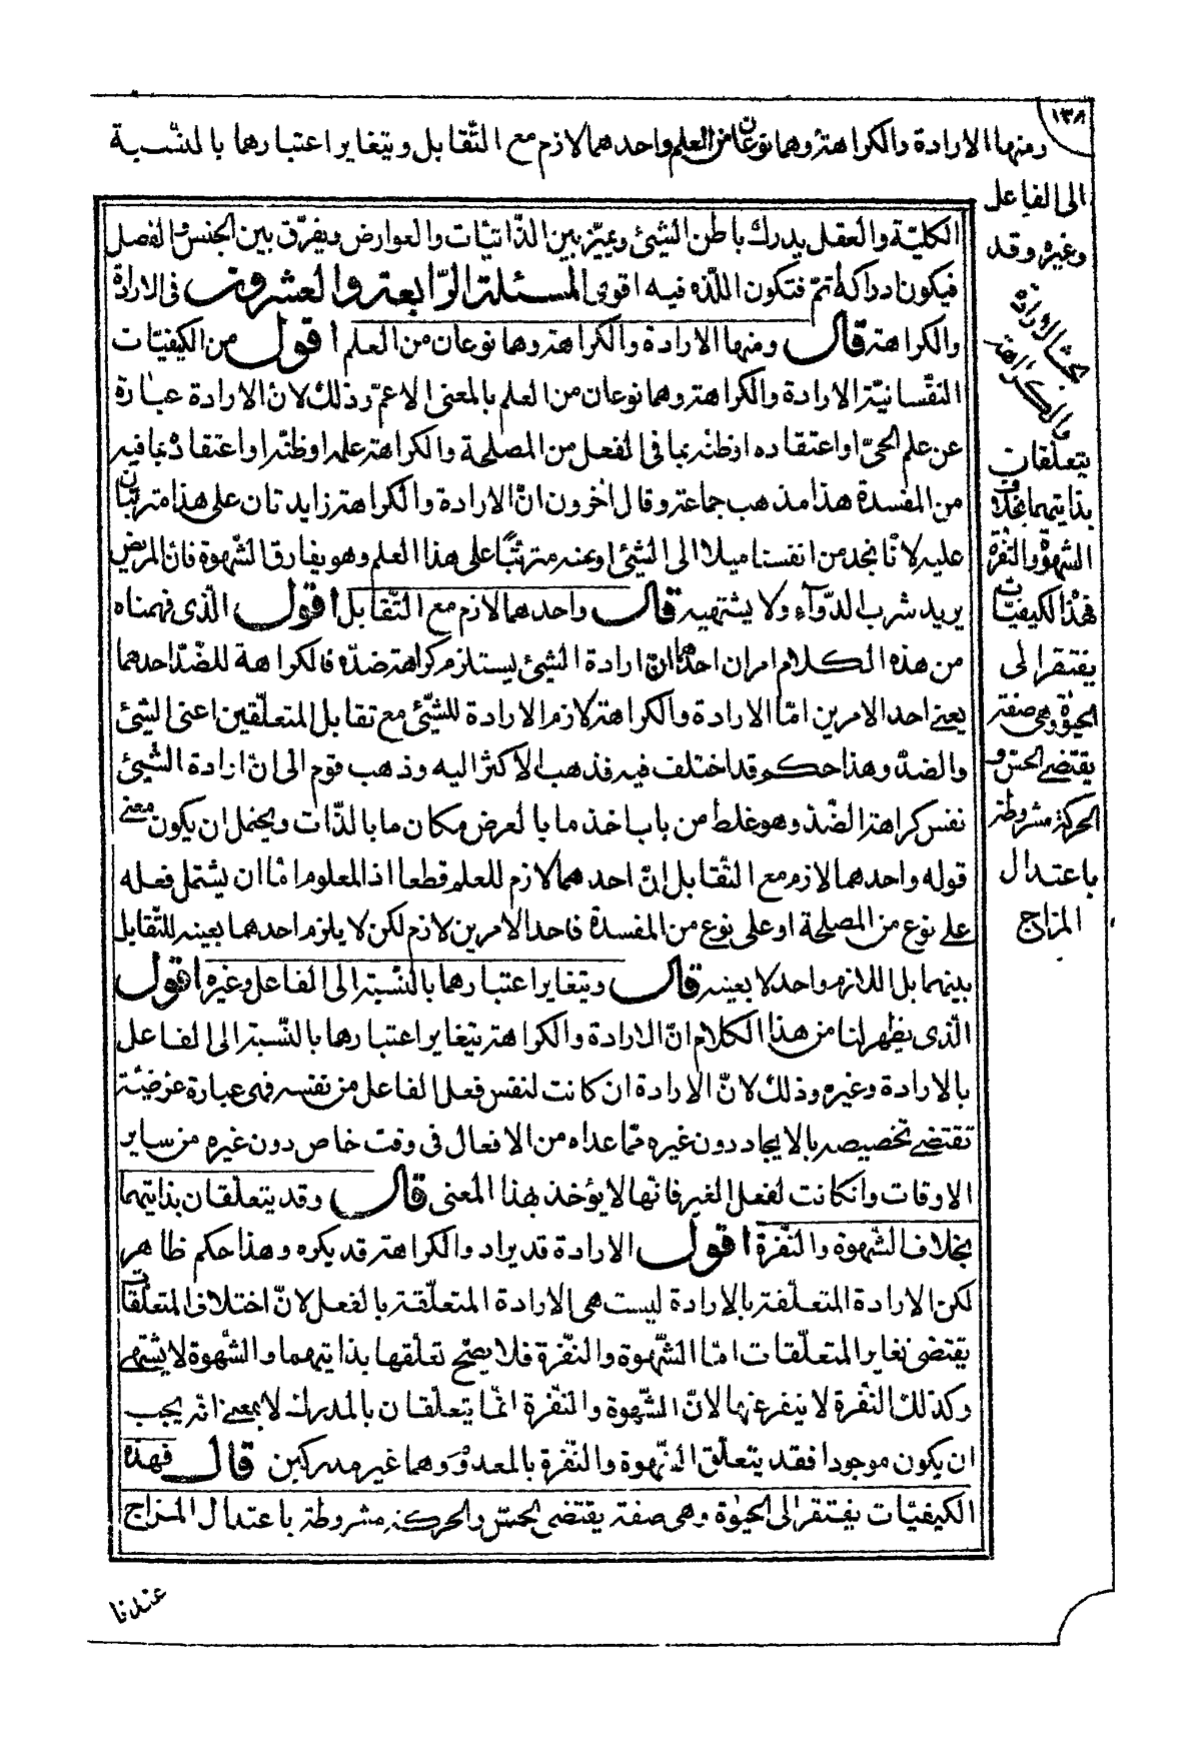 ١٣٨
ومنها الارادة والكراهة وهما نوعان من العلم واحدهما لازم مع التّقابل ويتغاير اعتبارهما بالنّسبة
الى الفاعل
وغيره وقد
بحث الارادة
والكراهة
يتعلّقان
بذاتيهما بخلاف
الشهوة والنّفرة
فهذه الكيفيّات
يفتقر الى
الحيوة وهى صفة
يقتضى الحسّ و
الحركة مشروطة
باعتدال
المزاج
الكليّة والعقل يدرك باطن الشيئ ويميّز بين الذّاتيّات والعوارض ويفرّق بين الجنس والفصل
فيكون ادراكه اتمّ فتكون اللّذه فيه اقوى المسئلة الرّابعة والعشرون فى الارادة
والكراهة قال ومنها الارادة والكراهة وهما نوعان من العلم اقول من الكيفيّات
النفّسانيّة الارادة والكراهة وهما نوعان من العلم بالمعنى الاعمّ وذلك لانّ الارادة عبارة
عن علم الحىّ او اعتقاده او ظنّه بما فى الفعل من المصلحة والكراهة علمه او ظنّه او اعتقاده بما فيه
من المفسدة هذا مذهب جماعة وقال اخرون انّ الارادة والكراهة زايدتان على هذا مترتّبتان
عليه لانّا نجد من انفسنا ميلا الى الشيئ او عنه مترتّبًا على هذا العلم وهو يفارق الشّهوة فانّ المريض
يريد شرب الدّوآء ولا يشتهيه قال واحدهما لازم مع التّقابل اقول الّذى فهمناه
من هذه الكلام امران احدهما انّ ارادة الشيئ يستلزم كراهة ضدّه فالكراهة للضّد احدهما
يعنى احد الامرين امّا الارادة والكراهة لازم الارادة للشّيئ مع تقابل المتعلّقين اعنى الشيئ
والضدّ وهذا حكم قد اختلف فيه فذهب الاكثر اليه وذهب قوم الى انّ ارادة الشّيئ
نفس كراهة الضّد وهو غلط من باب اخذ ما بالعرض مكان ما بالذّات ويحتمل ان يكون معنى
قوله واحدهما لازم مع التّقابل انّ احدهما لازم للعلم قطعا اذ المعلوم امّا ان يشتمل فعله
على نوع من المصلحة او على نوع من المفسدة فاحد الامرين لازم لكن لا يلزم احدهما بعينه للتّقابل
بينهما بل اللازم واحد لا بعينه قال ويتغاير اعتبارهما بالنّسبة الى الفاعل وغيره اقول
الّذى يظهر لنا من هذا الكلام انّ الارادة والكراهة يتغاير اعتبارها بالنّسبة الى الفاعل
بالارادة وغيره وذلك لانّ الارادة ان كانت لنفس فعل الفاعل من نفسه فهى عبارة عن صفة
تقتضى تخصيصه بالايجاد دون غيره ممّا عداه من الافعال فى وقت خاص دون غيره من ساير
الاوقات وانكانت لفعل الغير فانّها لا يؤخذ بهذا المعنى قال وقد يتعلّقان بذاتيهما
بخلاف الشّهوة والنّفرة اقول الارادة قد يراد والكراهة قد يكره وهذا حكم ظاهر
لكن الارادة المتعلّقة بالارادة ليست هى الارادة المتعلّقة بالفعل لانّ اختلاف المتعلّقات
يقتضى تغاير المتعلّقات امّا الشّهوة والنّفرة فلا يصحّ تعلّقها بذاتيهما والشّهوة لا يشتهى
وكذلك النّفرة لا ينفر عنها لانّ الشّهوة والنّفرة انّما يتعلّقان بالمدرك لا بمعنى انّه يجب
ان يكون موجودا فقد يتعلّق الشّهوة والنّفرة بالمعدوم وهما غير مدركين قال فهذه
الكيفيّات يفتقر الى الحيوة وهى صفة يقتضى الحسّ والحركة مشروطة باعتدال المزاج
عندنا